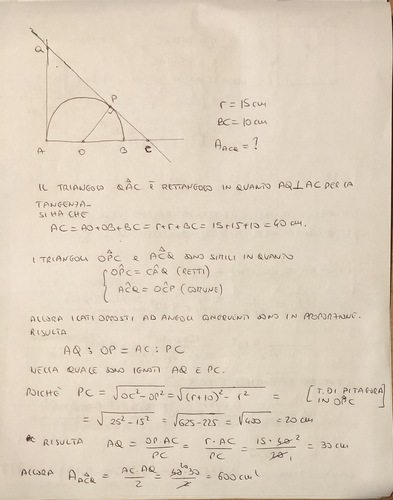 Q
P
A O B C
r = 15 cm
BC = 10 cm
A ACQ = ?
IL TRIANGOLO QÂC È RETTANGOLO IN QUANTO AQ⊥AC PER LA
TANGENZA.
SI HA CHE
AC = AO+OB+BC = r+r+BC = 15+15+10 = 40 cm.
I TRIANGOLI OP̂C E AĈQ SONO SIMILI IN QUANTO
{ OP̂C = CÂQ (RETTI)
AĈQ = OĈP (COMUNE)
ALLORA I LATI OPPOSTI AD ANGOLI CONGRUENTI SONO IN PROPORZIONE.
RISULTA
AQ : OP = AC : PC
NELLA QUALE SONO IGNOTI AQ E PC.
POICHÈ PC = √(OC²-OP²) = √((r+10)²-r²) = [T. DI PITAGORA IN OP̂C]
= √(25²-15²) = √(625-225) = √400 = 20 cm
RISULTA AQ = OP·AC/PC = r·AC/PC = 15·40²/20₁ = 30 cm
ALLORA A AĈQ = AC·AQ/2 = 40²⁰·30/2 = 600 cm²